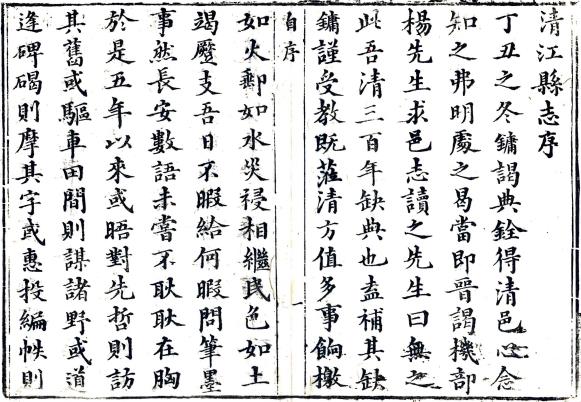 清江縣志序
丁丑之冬鏞謁典銓得清邑心念
知之弗明處之曷當即晉謁機部
楊先生求邑志讀之先生曰無之
此吾清三百年缺典也盍補其缺
鏞謹受教既蒞清方值多事餉檄
自序
一
如火郵如水災祲相繼民色如土
竭蹷支吾日不暇給何暇問筆墨
事然長安數語未嘗不耿耿在胸
於是五年以來或晤對先哲則訪
其舊或驅車田間則謀諸野或道
逢碑碣則摩其字或惠投編帙則